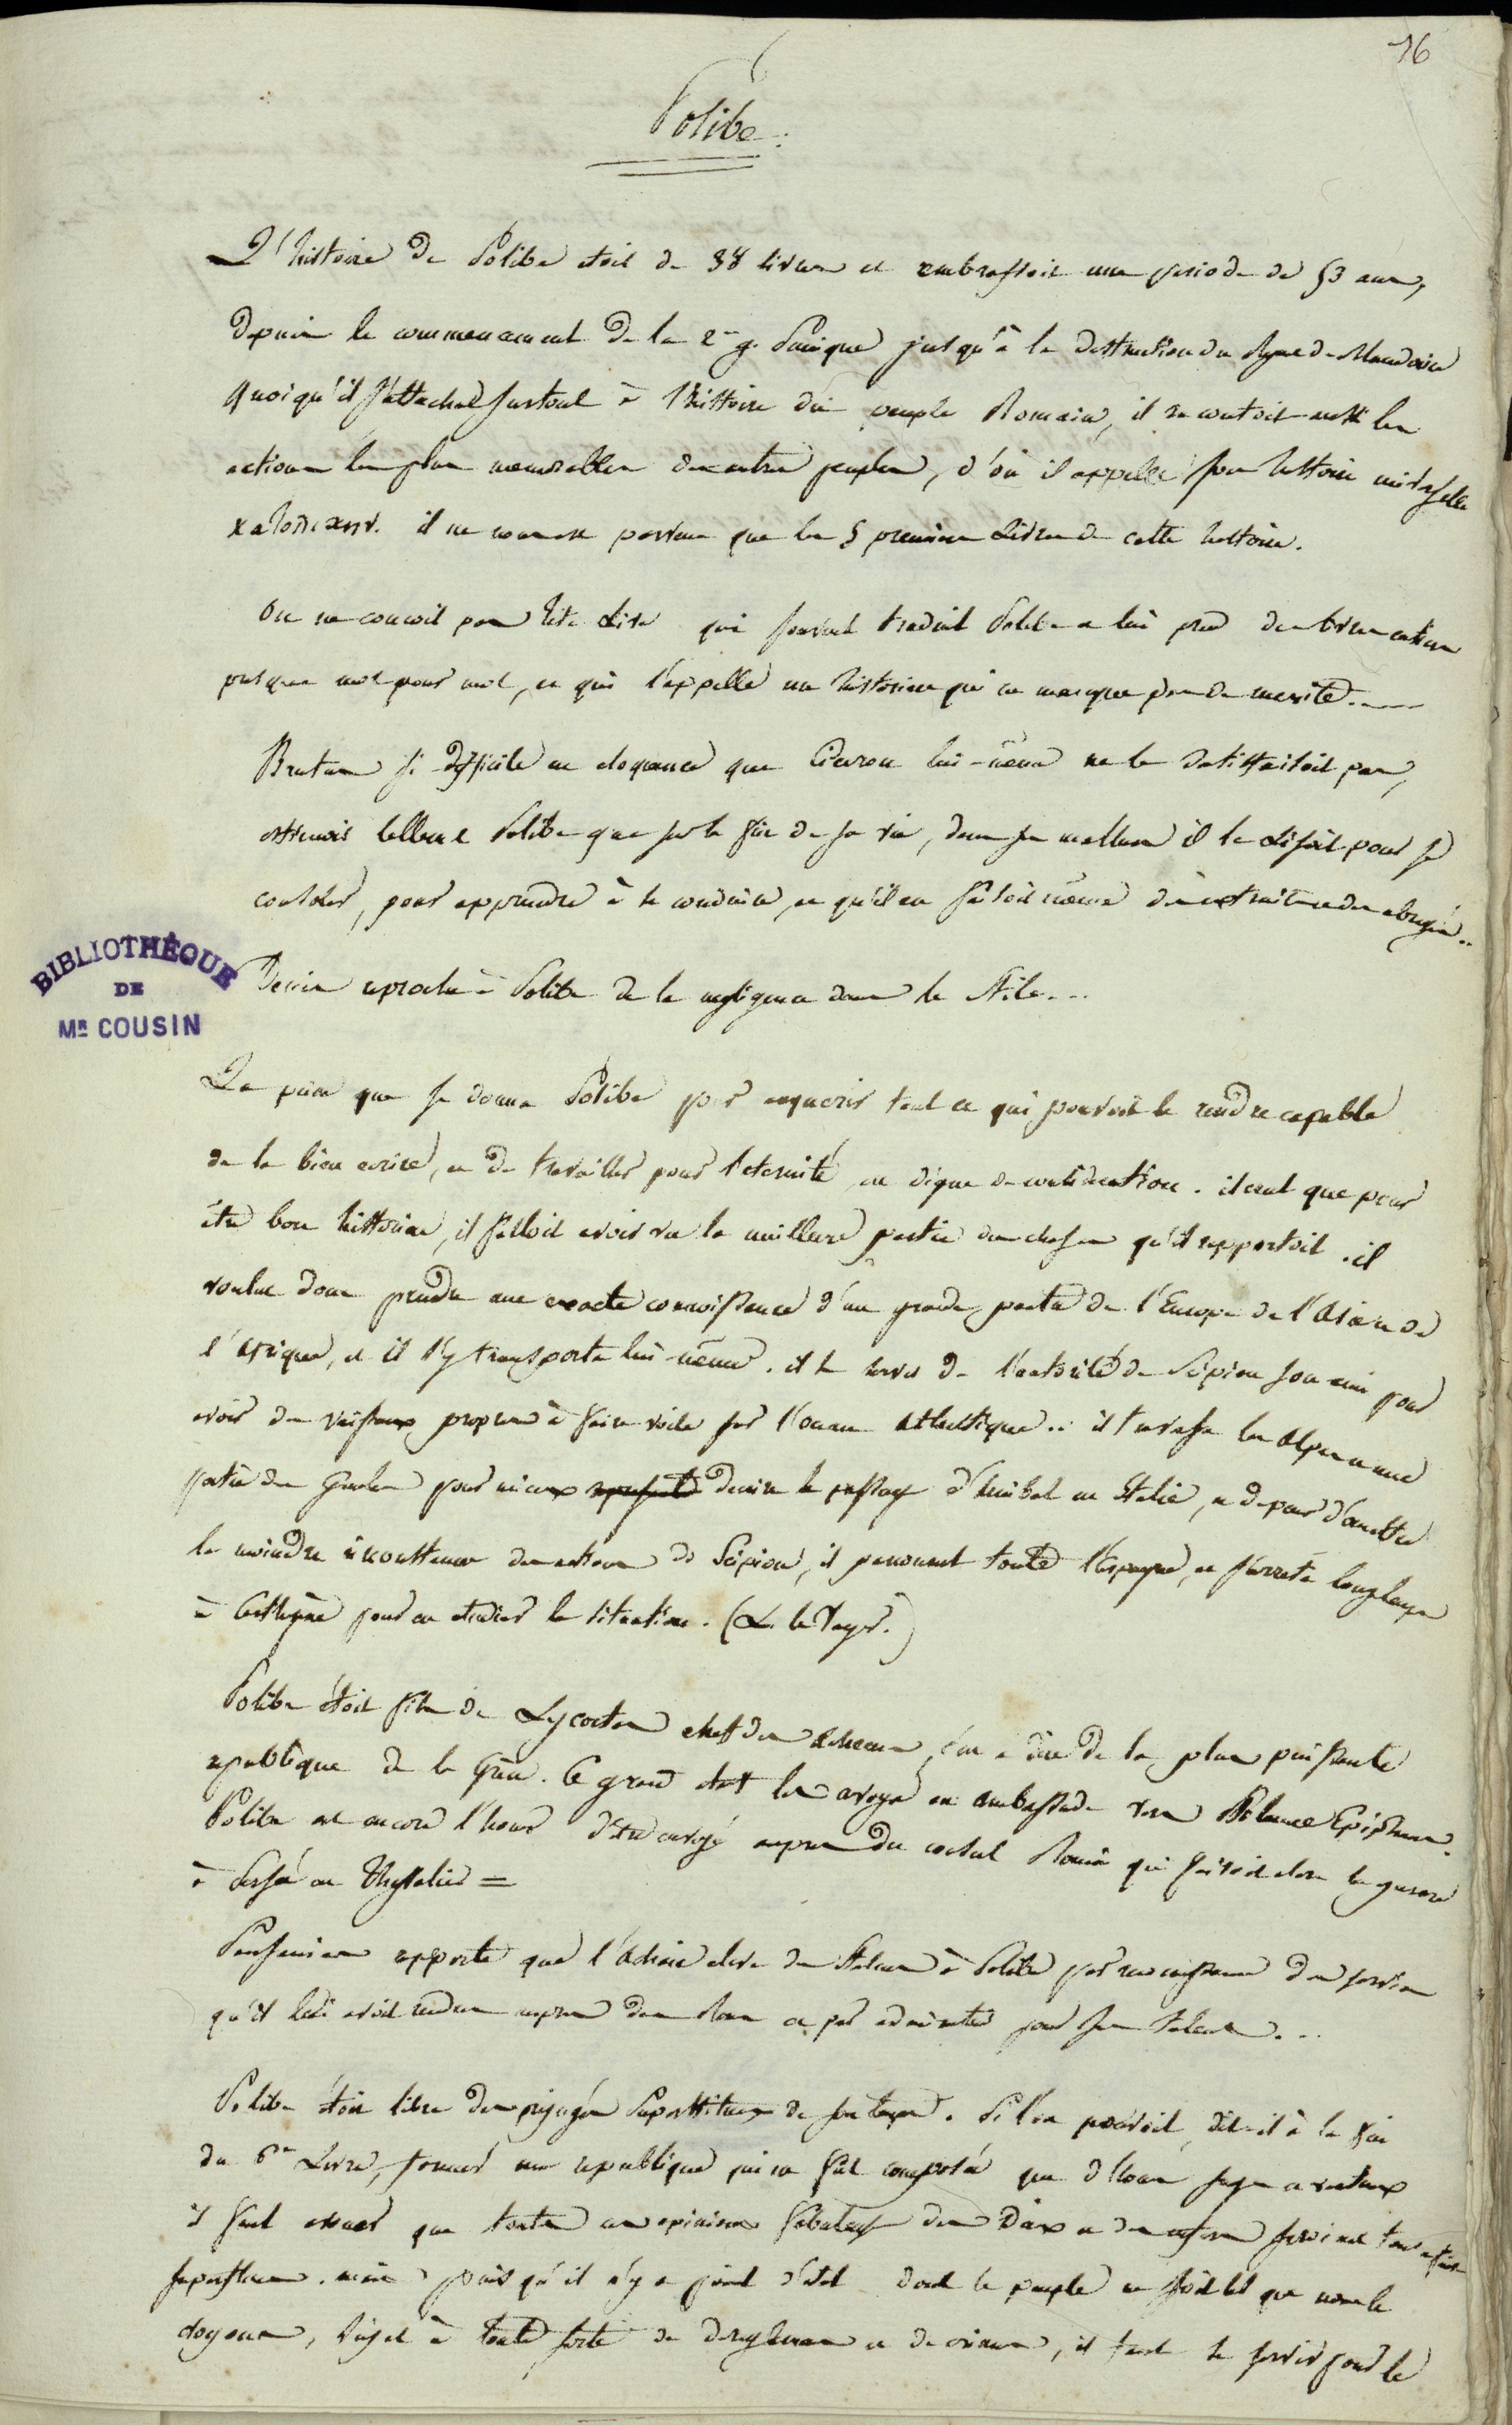 76
Polibe.
L'histoire de Polibe etoit de 38 livres et embrassoit une periode de 53 ans,
depuis le commencement de la 2me g. Punique jusqu'à la destruction du Ryme de Macedoine
quoiqu'il s'attachat surtout à l'histoire du peuple Romain, il racontoit aussi les
actions les plus memorables des autres peuples, d'où il appelle son histoire universelle
il ne nous est parvenu que les 5 premiers Livres de cette histoire.
On ne conçoit pas Tite Live qui souvent traduit Polibe et lui prend des livres entiers
presque mot pour mot, et qui l'appelle un historien qui ne manque pas de merite....
Brutus si difficile en eloquence que Ciceron lui-même ne le satisfaisoit pas,
Polibe que sur la fin de sa vie, dans ses malheurs il le lisoit pour se
consoler, pour apprendre à se conduire, et qu'il en faisoit même des extraits et des abregés..
BIBLIOTHÈQUE
DE
MR COUSIN
Denis reproche à Polibe de la negligence dans le stile...
La peine que se donna Polibe pour acquerir tout ce qui pouvoit le rendre capable
de la bien ecrire, et de travailler pour l'eternité, est digne de consideration. il crut que pour
être bon historien, il falloit avoir vu la meilleure partie des choses qu'il rapportoit. il
voulut donc prendre une exacte connoissance d'une grande partie de l'Europe de l'Asie et de
l'Afrique, et il s'y transporta lui-même. il se servit de l'autorité de Scipion son ami pour
avoir des vaisseaux propres à faire voile sur l'ocean Athlantique.. il traversa les Alpes et une
partie des Gaules pour mieux decrire le passage d'Annibal en Italie, et de peur d'omettre
la moindre circonstance des actions de Scipion, il parcourut toute l'Espagne, et s'arreta longtemps
à Carthagène pour en etudier la situation. (L. le Vayer.)
Polibe étoit fils de Lycortas chef des Acheens, c'est à dire de la plus puissante
republique de la Grèce. Ce grand etat les avoya en ambassade vers Ptolemée Epiphane.
Polibe eut encore l'honneur d'être envoyé auprès du consul Romain qui faisoit alors la guerre
à Persée en Thessalie =
Pausanias rapporte que l'Achaie eleva des statues à Polibe par reconnoissance des services
qu'il lui avoit rendus auprès des Rom. et par admiration pour ses talents...
Polibe étoit libre des prejugés superstitieux de son temps. Si l'on pouvoit, dit-il à la fin
du 6me Livre, former une republique qui ne fut composée que d'homes sages et vertueux
il faut avouer que toutes ces opinions fabuleuses des Dieux et des enfers seroient tout à fait
superflues. mais puis qu'il n'y a point d'etat dont le peuple ne soit tel que nous le
voyons, sujet à toute sorte de dereglemens et de crimes, il faut se servir pour le